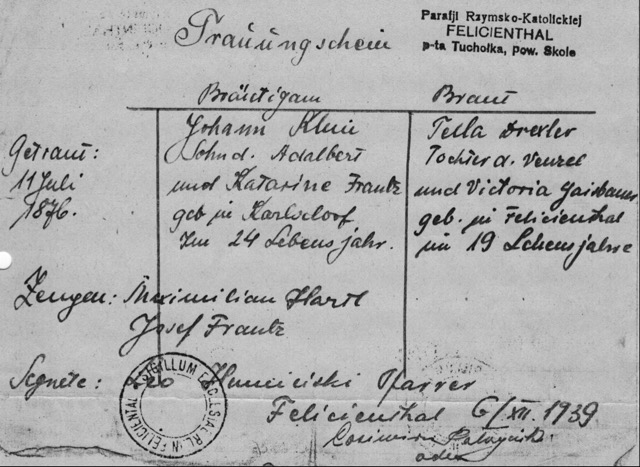 Parafji Rzymsko-Katolickiej
FELICIENTHAL
p-ta Tuchołka, pow. Skole
Trauungschein
Bräutigam
Braut
Getraut:
11 Juli
1876.
Johann Klein
Sohn d. Adalbert
und Katarine Frantz
geb in Karlsdorf
Im 24 Lebensjahr.
Tekla Drexler
Tochter d. Venzel
und Victoria
geb. in Felicienthal
im 19 Lebensjahre
Zeugen: Maximilian Hartl
Josef Frantz
Segnete: Leo Pfarrer
SIGILLUM ECCLESIAE RL. IN FELICIENTHAL
Felicienthal 6/XII. 1939